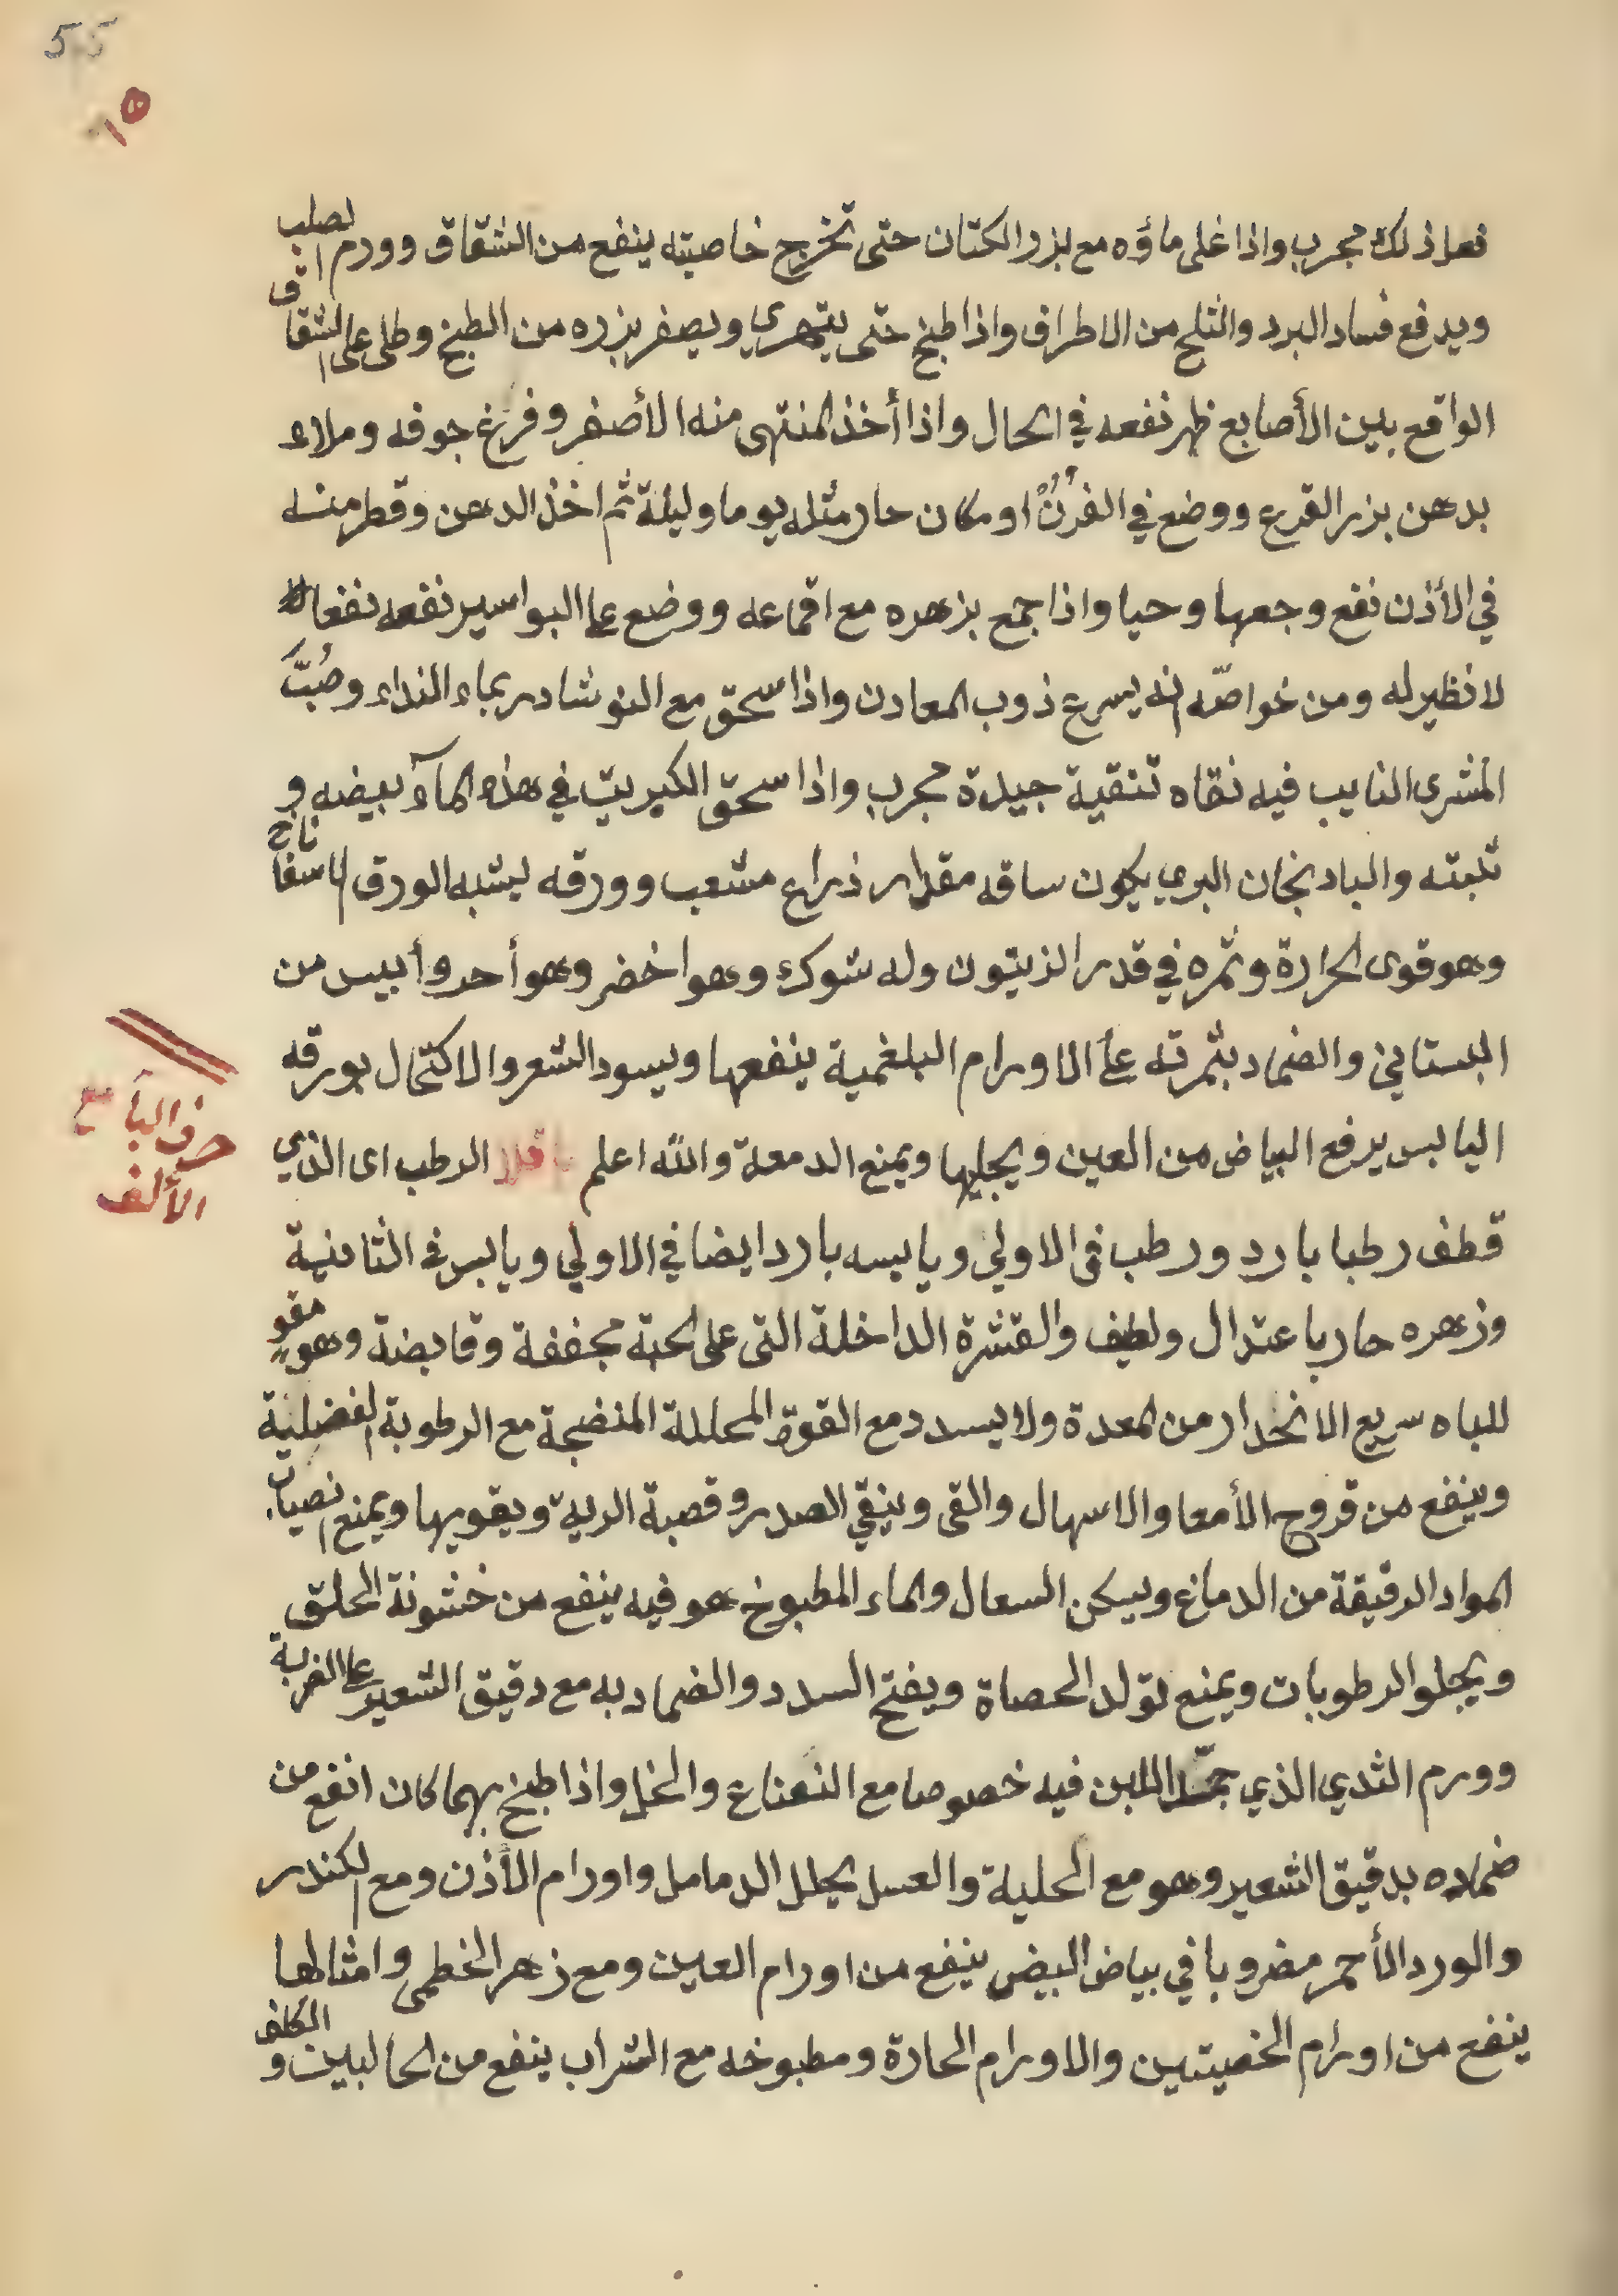 55
١٥
فعل ذلك مجرب واذا غلى ماؤه مع بزر الكتان حتى تخرج خاصيته ينفع من الشقاق وورم الصلب
ويدفع فساد البرد والثلج من الاطراف واذا طبخ حتى يتهرى ويصفر بزره من الطبخ وطلى على الشقاق
الواقع بين الأصابع ظهر نفعه في الحال واذا أخذ المنتهى منه الأصفر وفرغ جوفه وملاء
بدهن بزر القرع ووضع في الفرن او مكان حار مثله يوما وليلة ثم اخذ الدهن وقطر منه
في الأذن نفع وجعها وحيا واذا جمع بزهره مع اقماعه ووضع على البواسير نفعه نفعا
لا نظير له ومن خواصه انه يسرع ذوب المعادن واذا سحق مع النوشادر بماء النداء وصُبَّ
المشرى النايب فيه نقاه تنقية جيدة مجرب واذا سحق الكبريت في هذه المآء بيضه و
ثبته والبادنجان البري يكون ساقه مقدار ذراع مشعب وورقه يشبه الورق الاسفاناج
وهو قوى الحرارة وثمره في قدر الزيتون وله شوك وهو اخضر وهو أحد وأيبس من
البستاني والضماد بثمرته على الاورام البلغمية ينفعها ويسود الشعر والاكتحال بورقه
اليابس يرفع البياض من العين ويجليها ويمنع الدمعة والله اعلم باقلا الرطب اى الذي
حرف البآ مع
الألف
قطف رطبا بارد ورطب في الاولي ويابسه بارد ايضا في الاولي ويابس في الثانية
وزهره حار باعتدال ولطيف والقشرة الداخلة التى على الحبة مجففة وقابضة وهو مقو
للباه سريع الانحدار من المعدة ولا يسدد مع القوة المحللة المنضجة مع الرطوبة الفضلية
وينفع من قروح الأمعا والاسهال والقى وينقي الصدر وقصبة الرية ويقويها ويمنع انصباب
المواد الرقيقة من الدماغ ويسكن السعال والماء المطبوخ هو فيه ينفع من خشونة الحلق
ويجلو الرطوبات ويمنع تولد الحصاة ويفتح السدد والضماد به مع دقيق الشعير على الضربة
وورم الثدي الذي جمّد اللبن فيه خصوصا مع النعناع والخل واذا طبخ بهما كان انفع من
ضماده بدقيق الشعير وهو مع الحلبة والعسل يحلل الدمامل واورام الأذن ومع الكندر
والورد الأحمر مضروبا في بياض البيض ينفع من اورام العين ومع زهر الخطمى وامثالها
ينفع من اورام الخصيتين والاورام الحارة ومطبوخه مع الشراب ينفع من الحالبين و الكلف